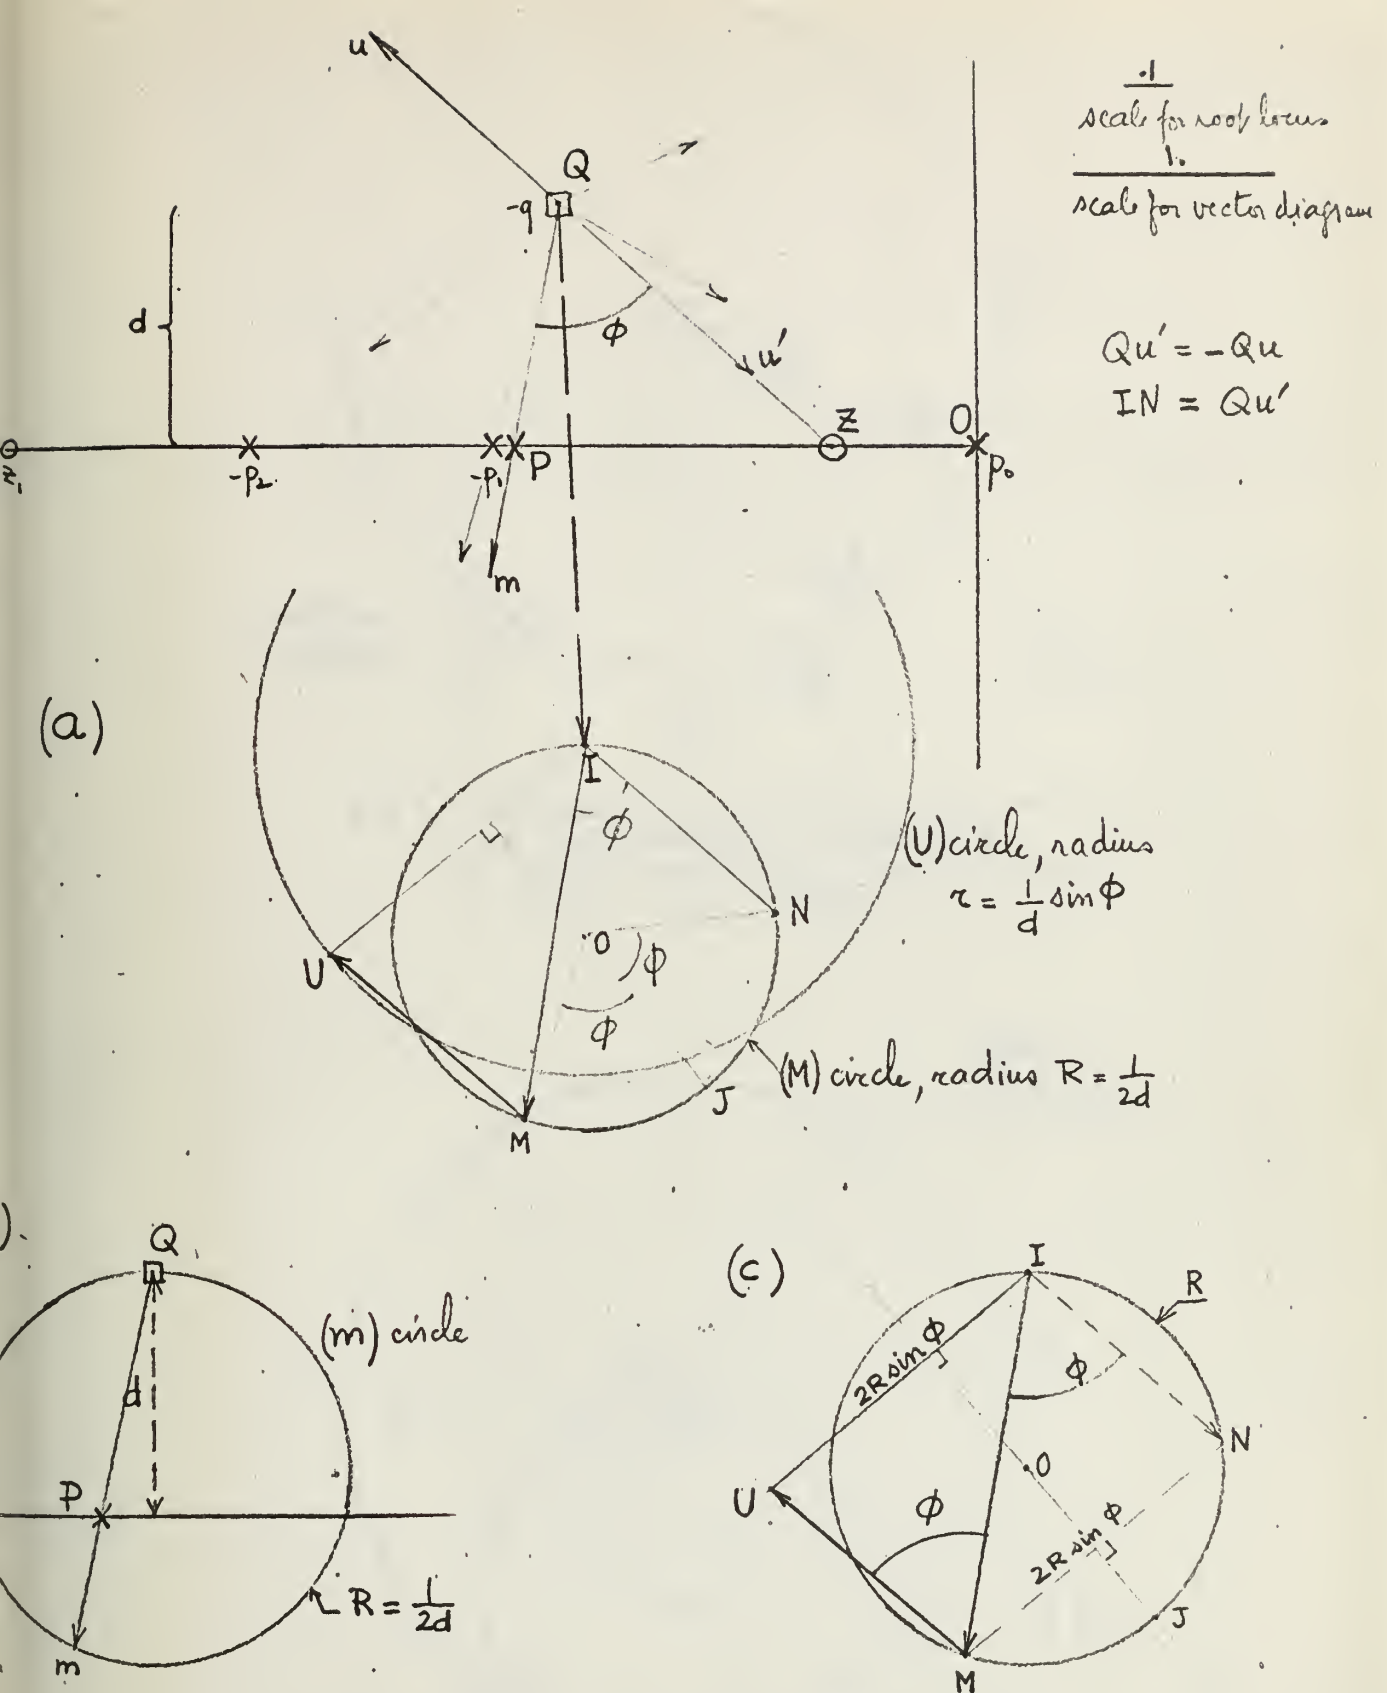 u
.1
scale for root locus
1.
scale for vector diagram
Q
-q
d
φ
u'
Qu' = -Qu
IN = Qu'
z₁
-p₂
-p₁
P
Z
O
p₀
m
(a)
I
φ
(U) circle, radius
r = 1/d sin φ
N
O
φ
U
φ
(M) circle, radius R = 1/2d
J
M
)
Q
(m) circle
d
P
R = 1/2d
m
(c)
I
R
2R sin φ
φ
N
O
U
φ
2R sin φ
J
M